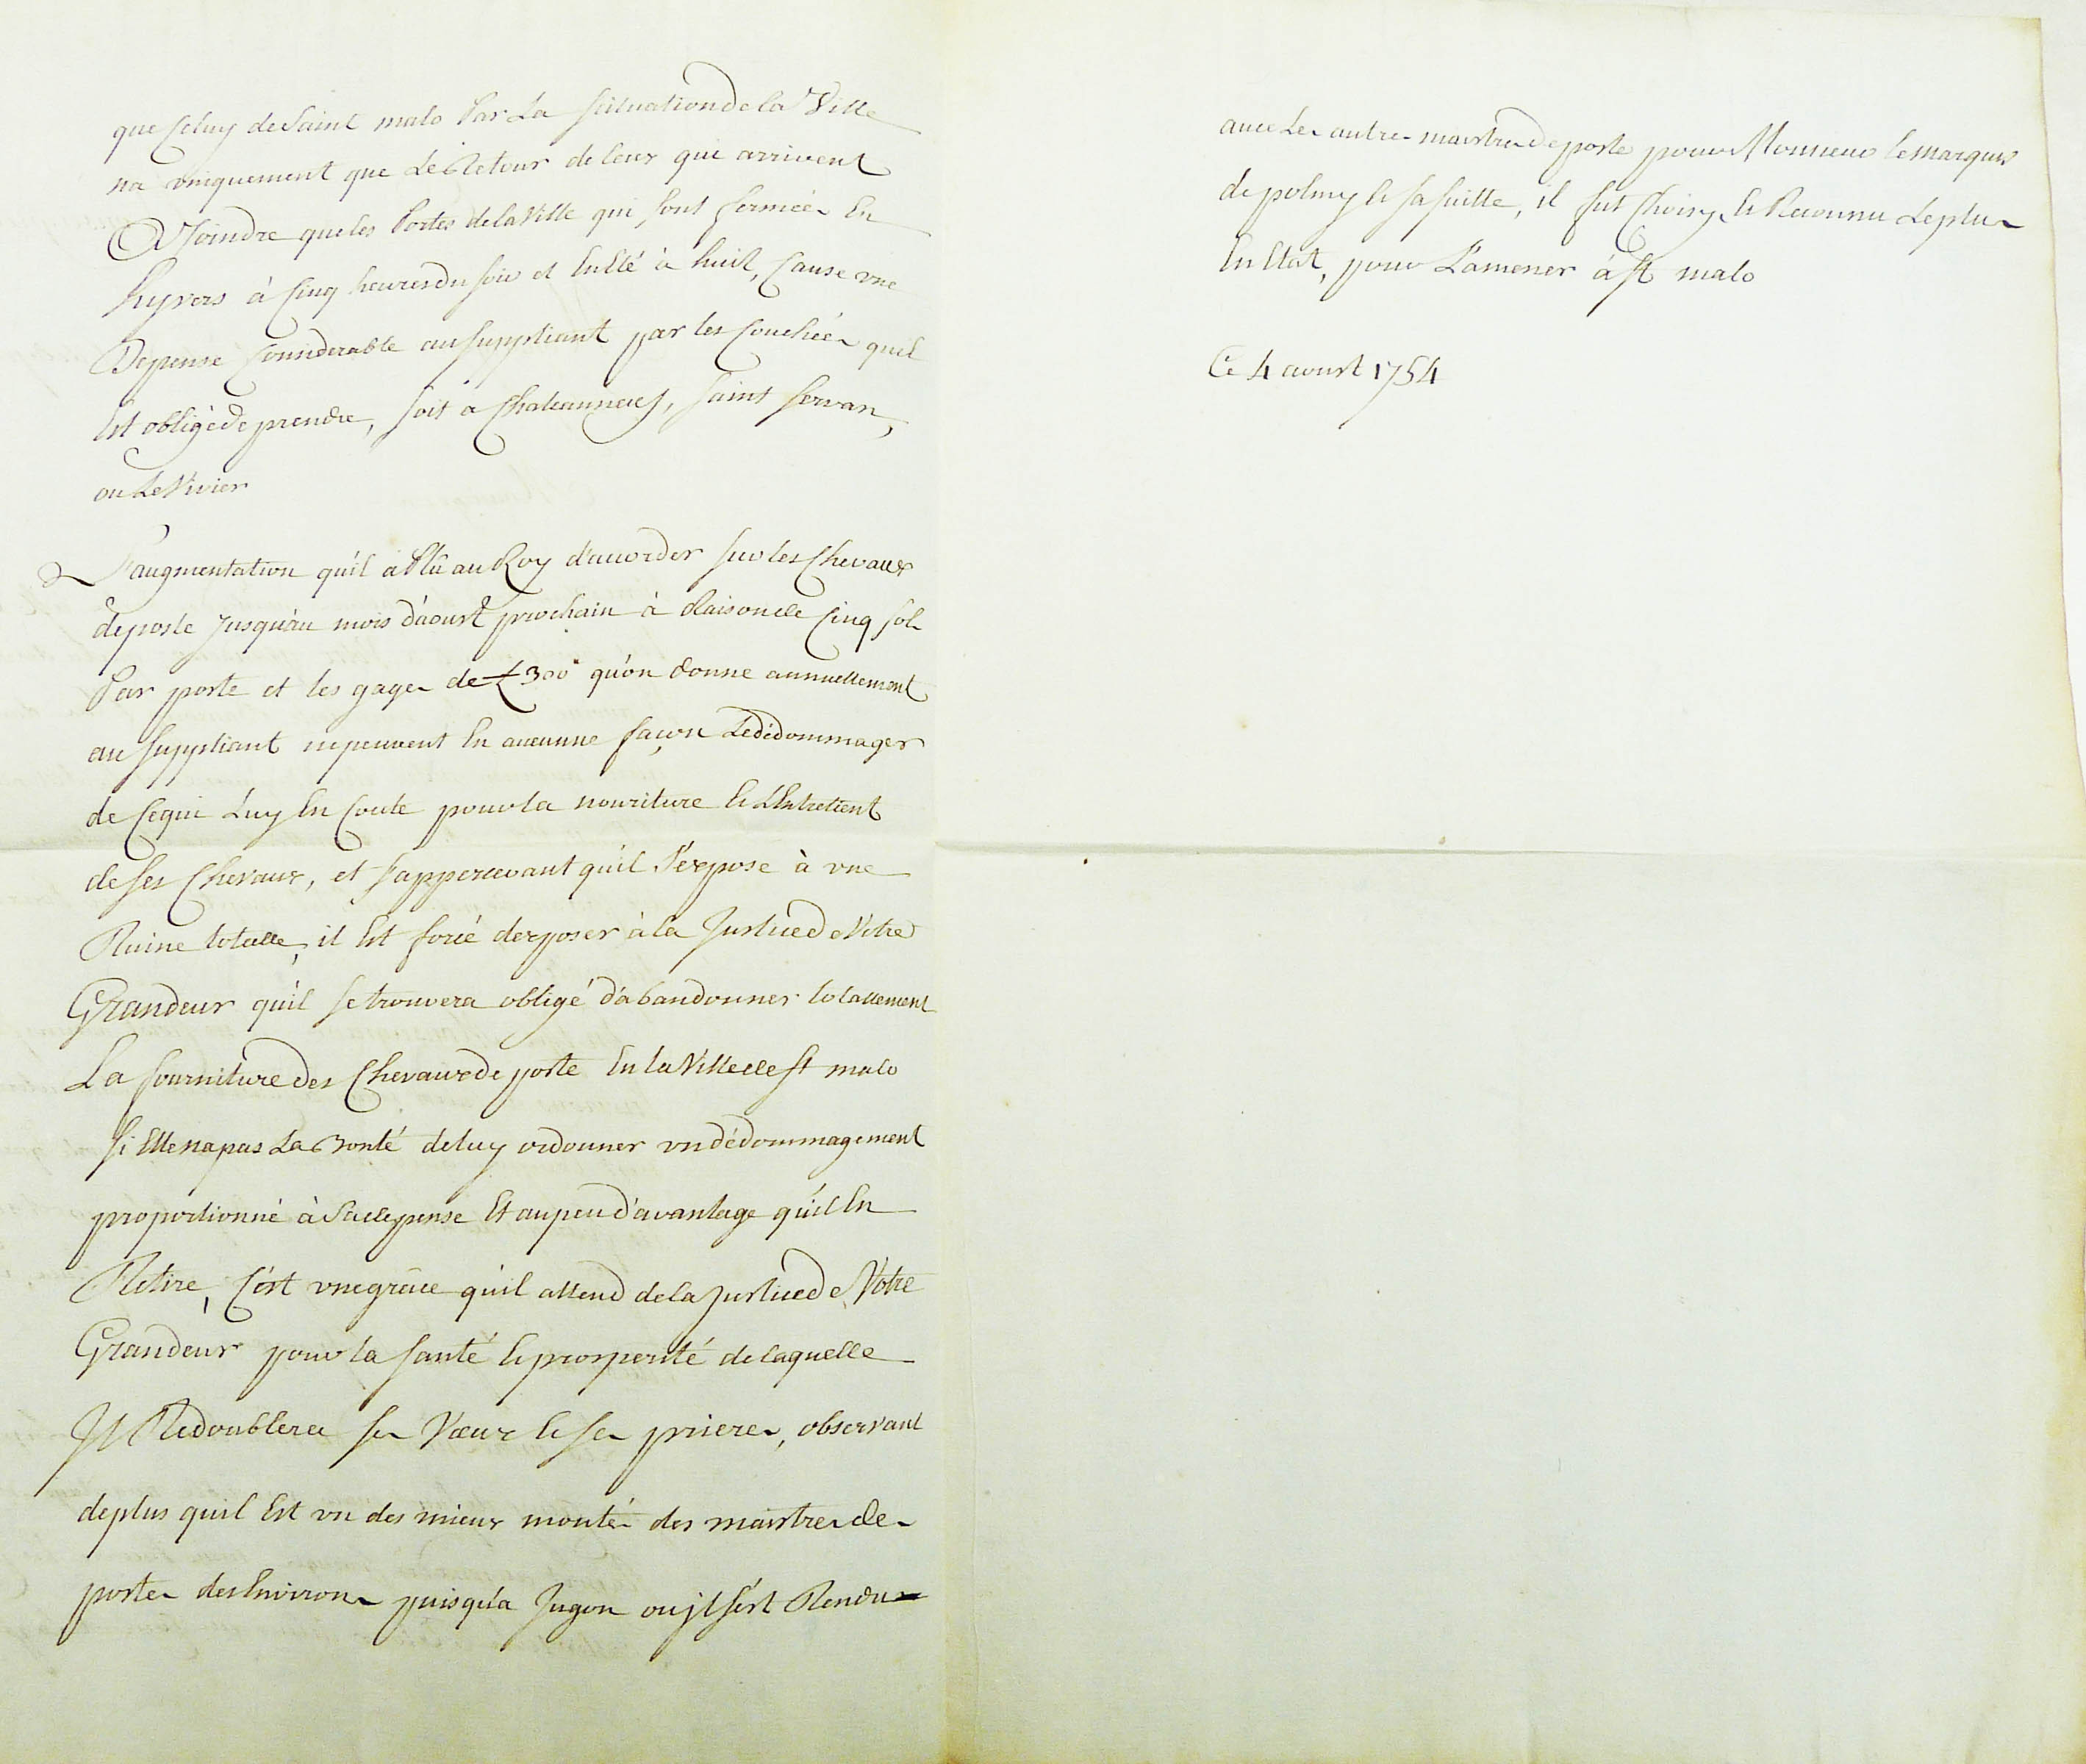 que Celuy de Saint malo Par La scituation de la Ville
na vniquement que Le Retour de ceux qui arrivent
Joindre que les Portes de la Ville qui sont fermées En
hyvers à Cinq heures du soir et En Eté à huit, Cause vne
Depense Considerable au suppliant par les Couchées quil
Est obligé de prendre, soit a Chateauneuf, saint servan,
ou Le Vivier
L'augmentation qu'il a Plû au Roy d'accorder sur les Chevaux
de poste Jusqu'au mois d'aoust prochain à Raison de Cinq sols
Par poste et les gages de £ 300 qu'on donne annuellement
au suppliant ne peuvent En aucunne façon Le dédommager
de Ce qui Luy En Coute pour la nouriture & L'Entretient
de ses Chevaux, et s'appercevant qu'il S'expose à vne
Ruine totalle, il Est forcé dexposer à la Justice de Vôtre
Grandeur qu'il se trouvera obligé d'abandonner totallement
La fourniture des Chevaux de poste En la Ville de St malo
si Elle na pas La Bonté de luy ordonner vn dédommagement
proportionné à Sa depense Et au peu d'avantage qu'il En
Retire, C'est vne grâce qu'il attend de la Justice de Votre
Grandeur pour la santé & prosperité de laquelle
Jl Redoublera ses Vœux & ses prieres, observant
de plus quil Est vn des mieux montés des maistres de
postes des Environs puisqu'a Jugon ou jl s'est Rendu
avec Les autres maistres de poste pour Monsieur le marquis
de polmy & sa suitte, il fut Choisy & Reconnu Le plus
En Etat, pour L'amener à St malo
Ce 4 aoust 1754